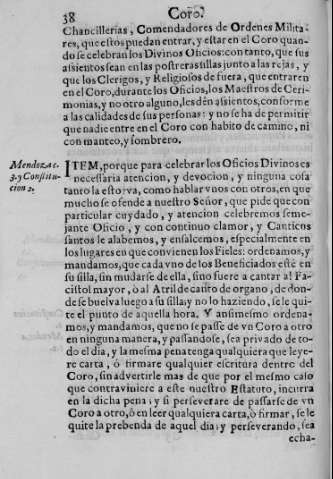 38
Coro.
Chancillerias, Comendadores de Ordenes Milita-
res, que estos puedan entrar, y estar en el Coro quan-
do se celebran los Divinos Oficios: con tanto, que sus
assientos sean en las postreras sillas junto a las rejas, y
que los Clerigos, y Religiosos de fuera, que entraren
en el Coro, durante los Oficios, los Maestros de Ceri-
monias, y no otro alguno, les dèn assientos, conforme
a las calidades de sus personas: y no se ha de permitir
que nadie entre en el Coro con habito de camino, ni
con manteo, y sombrero.
Mendoza c.
3. y Constitu-
cion 2.
ITEM, porque para celebrar los Oficios Divinos es
necessaria atencion, y devocion, y ninguna cosa
tanto la estorva, como hablar vnos con otros, en que
mucho se ofende a nuestro Señor, que pide que con
particular cuydado, y atencion celebremos seme-
jante Oficio, y con continuo clamor, y Canticos
santos le alabemos, y ensalcemos, especialmente en
los lugares en que convienen los Fieles: ordenamos, y
mandamos, que cada vno de los Beneficiados estè en
su silla, sin mudarse de ella, sino fuere a cantar al Fa-
cistol mayor, ò al Atril de canto de organo, de don-
de se buelva luego a su silla y no lo haziendo, se le qui-
te el punto de aquella hora. Y ansimesmo ordena-
mos, y mandamos, que no se passe de vn Coro a otro
en ninguna manera, y passandose, sea privado de to-
do el dia, y la mesma pena tenga qualquiera que leye-
re carta, ò firmare qualquier escritura dentro del
Coro, sin advertirle mas de que por el mesmo caso
que contraviniere a este nuestro Estatuto, incurra
en la dicha pena; y si perseverare de passarse de vn
Coro a otro, ò en leer qualquiera carta, ò firmar, se le
quite la prebenda de aquel dia; y perseverando, sea
echa-